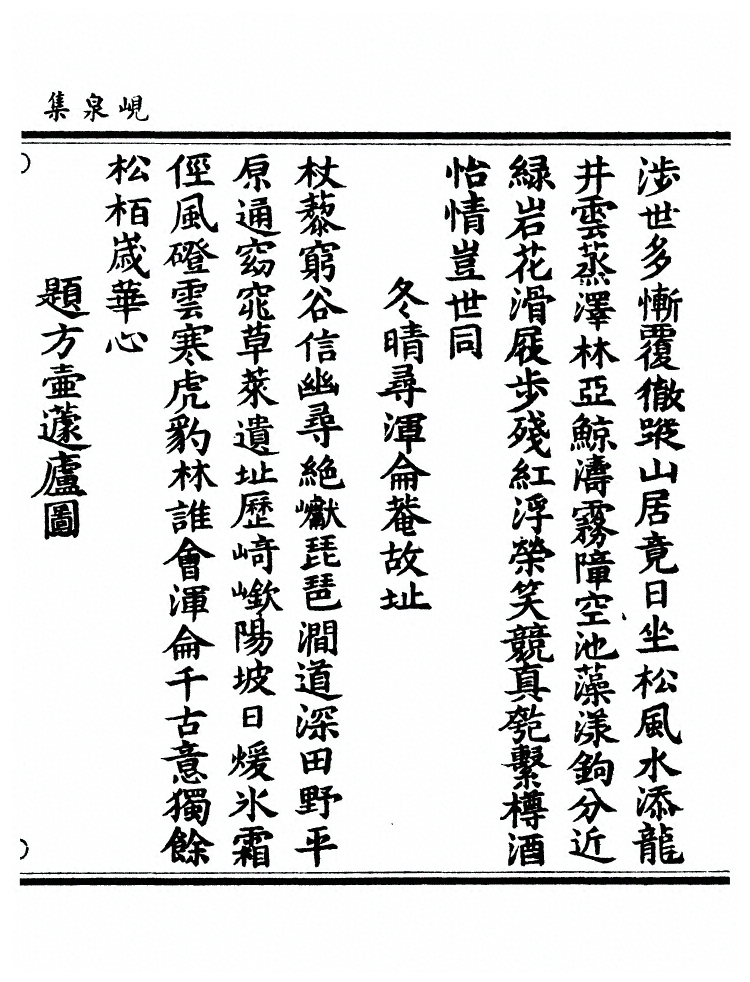 峴泉集
涉世多慚覆轍蹤山居竟日坐松風水添龍
井雲蒸澤林亞鯨濤霧障空池藻漾鉤分近
綠岩花滑屐步殘紅浮榮笑競真匏繫樽酒
怡情豈世同
冬晴尋渾侖菴故址
杖藜窮谷信幽尋絶巘琵琶澗道深田野平
原通窈窕草萊遺址歷崎嶔陽坡日煖氷霜
徑風磴雲寒虎豹林誰會渾侖千古意獨餘
松栢歲華心
題方壺蘧廬圖